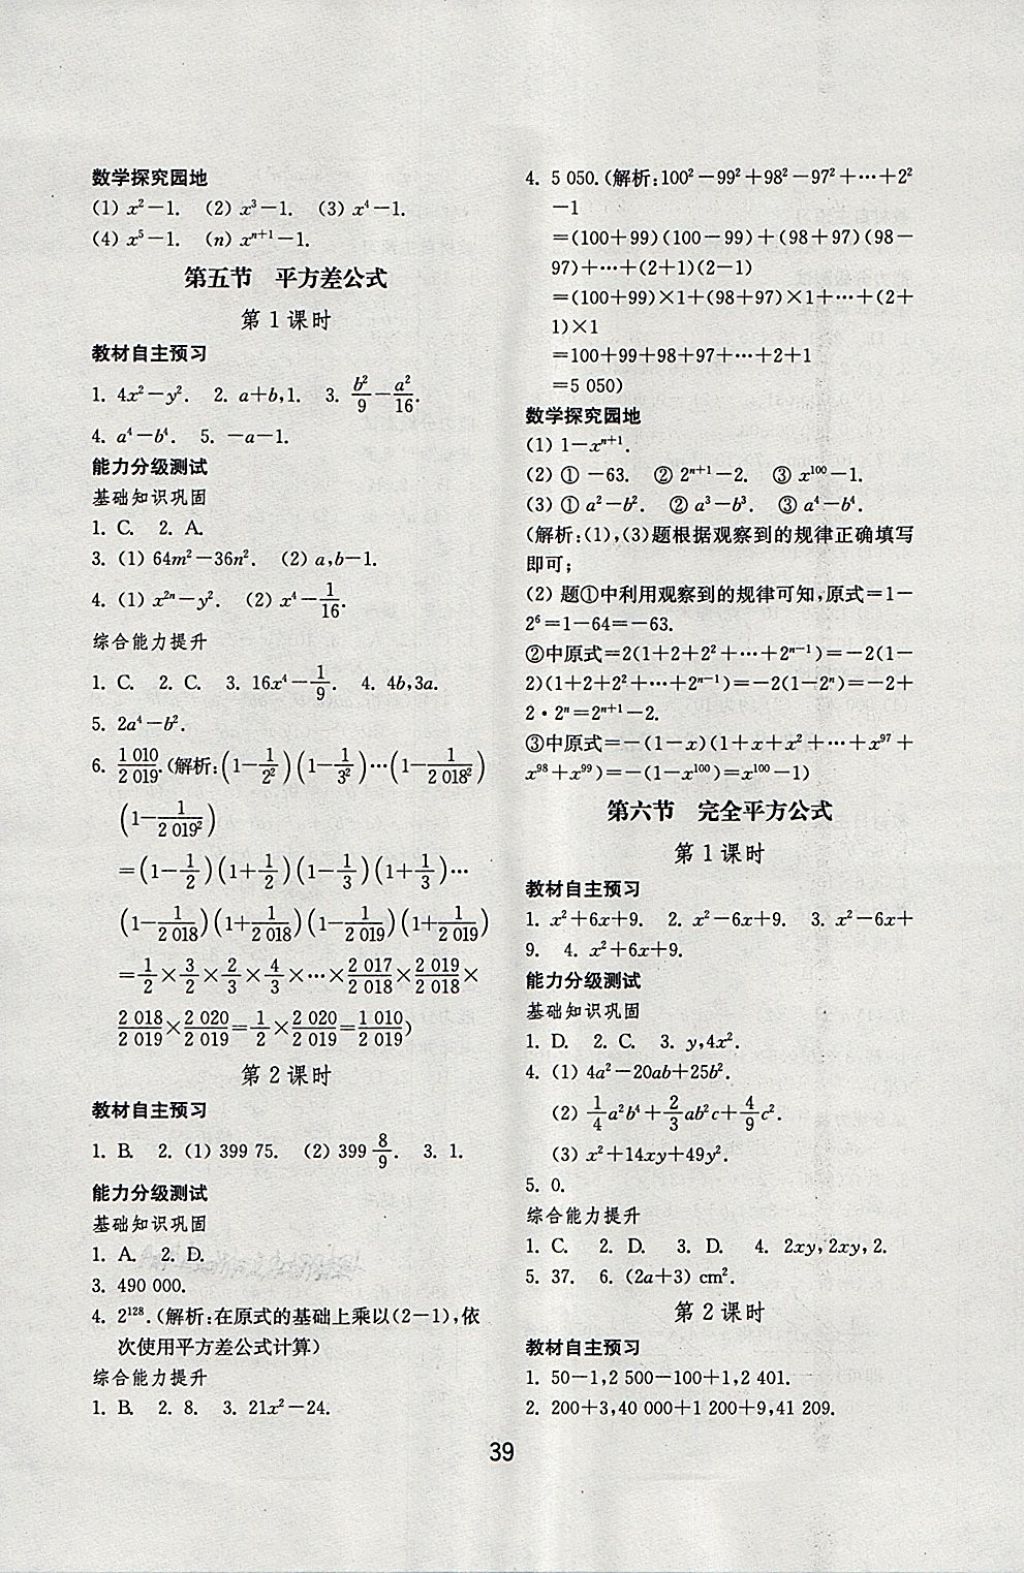 数学探究园地
(1) x²－1. (2) x³－1. (3) x⁴－1.
(4) x⁵－1. (n) xⁿ⁺¹－1.
第五节 平方差公式
第1课时
教材自主预习
1. 4x²－y². 2. a＋b,1. 3. b²/9－a²/16.
4. a⁴－b⁴. 5. －a－1.
能力分级测试
基础知识巩固
1. C. 2. A.
3. (1) 64m²－36n². (2) a,b－1.
4. (1) x²ⁿ－y². (2) x⁴－1/16.
综合能力提升
1. C. 2. C. 3. 16x⁴－1/9. 4. 4b,3a.
5. 2a⁴－b².
6. 1 010/2 019.(解析:(1－1/2²)(1－1/3²)…(1－1/2 018²)
(1－1/2 019²)
＝(1－1/2)(1＋1/2)(1－1/3)(1＋1/3)…
(1－1/2 018)(1＋1/2 018)(1－1/2 019)(1＋1/2 019)
＝1/2×3/2×2/3×4/3×…×2 017/2 018×2 019/2 018×
2 018/2 019×2 020/2 019＝1/2×2 020/2 019＝1 010/2 019)
第2课时
教材自主预习
1. B. 2. (1) 399 75. (2) 399 8/9. 3. 1.
能力分级测试
基础知识巩固
1. A. 2. D.
3. 490 000.
4. 2¹²⁸.(解析:在原式的基础上乘以(2－1),依
次使用平方差公式计算)
综合能力提升
1. B. 2. 8. 3. 21x²－24.
4. 5 050.(解析:100²－99²＋98²－97²＋…＋2²
－1
＝(100＋99)(100－99)＋(98＋97)(98－
97)＋…＋(2＋1)(2－1)
＝(100＋99)×1＋(98＋97)×1＋…＋(2＋
1)×1
＝100＋99＋98＋97＋…＋2＋1
＝5 050)
数学探究园地
(1) 1－xⁿ⁺¹.
(2) ① －63. ② 2ⁿ⁺¹－2. ③ x¹⁰⁰－1.
(3) ① a²－b². ② a³－b³. ③ a⁴－b⁴.
(解析:(1),(3)题根据观察到的规律正确填写
即可;
(2) 题①中利用观察到的规律可知,原式＝1－
2⁶＝1－64＝－63.
②中原式＝2(1＋2＋2²＋…＋2ⁿ⁻¹)＝－2(1－
2)(1＋2＋2²＋…＋2ⁿ⁻¹)＝－2(1－2ⁿ)＝－2＋
2·2ⁿ＝2ⁿ⁺¹－2.
③中原式＝－(1－x)(1＋x＋x²＋…＋x⁹⁷＋
x⁹⁸＋x⁹⁹)＝－(1－x¹⁰⁰)＝x¹⁰⁰－1)
第六节 完全平方公式
第1课时
教材自主预习
1. x²＋6x＋9. 2. x²－6x＋9. 3. x²－6x＋
9. 4. x²＋6x＋9.
能力分级测试
基础知识巩固
1. D. 2. C. 3. y,4x².
4. (1) 4a²－20ab＋25b².
(2) 1/4a²b⁴＋2/3ab²c＋4/9c².
(3) x²＋14xy＋49y².
5. 0.
综合能力提升
1. C. 2. D. 3. D. 4. 2xy,2xy,2.
5. 37. 6. (2a＋3) cm².
第2课时
教材自主预习
1. 50－1,2 500－100＋1,2 401.
2. 200＋3,40 000＋1 200＋9,41 209.
39